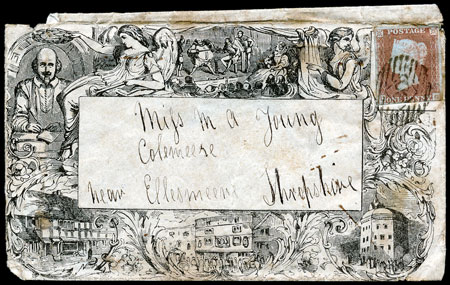 Miss M A Young
Colemere
near Ellesmere Shropshire
ONE PENNY